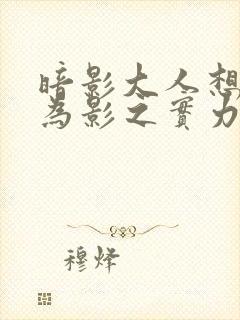 暗影大人想
為影之實力
穆烽